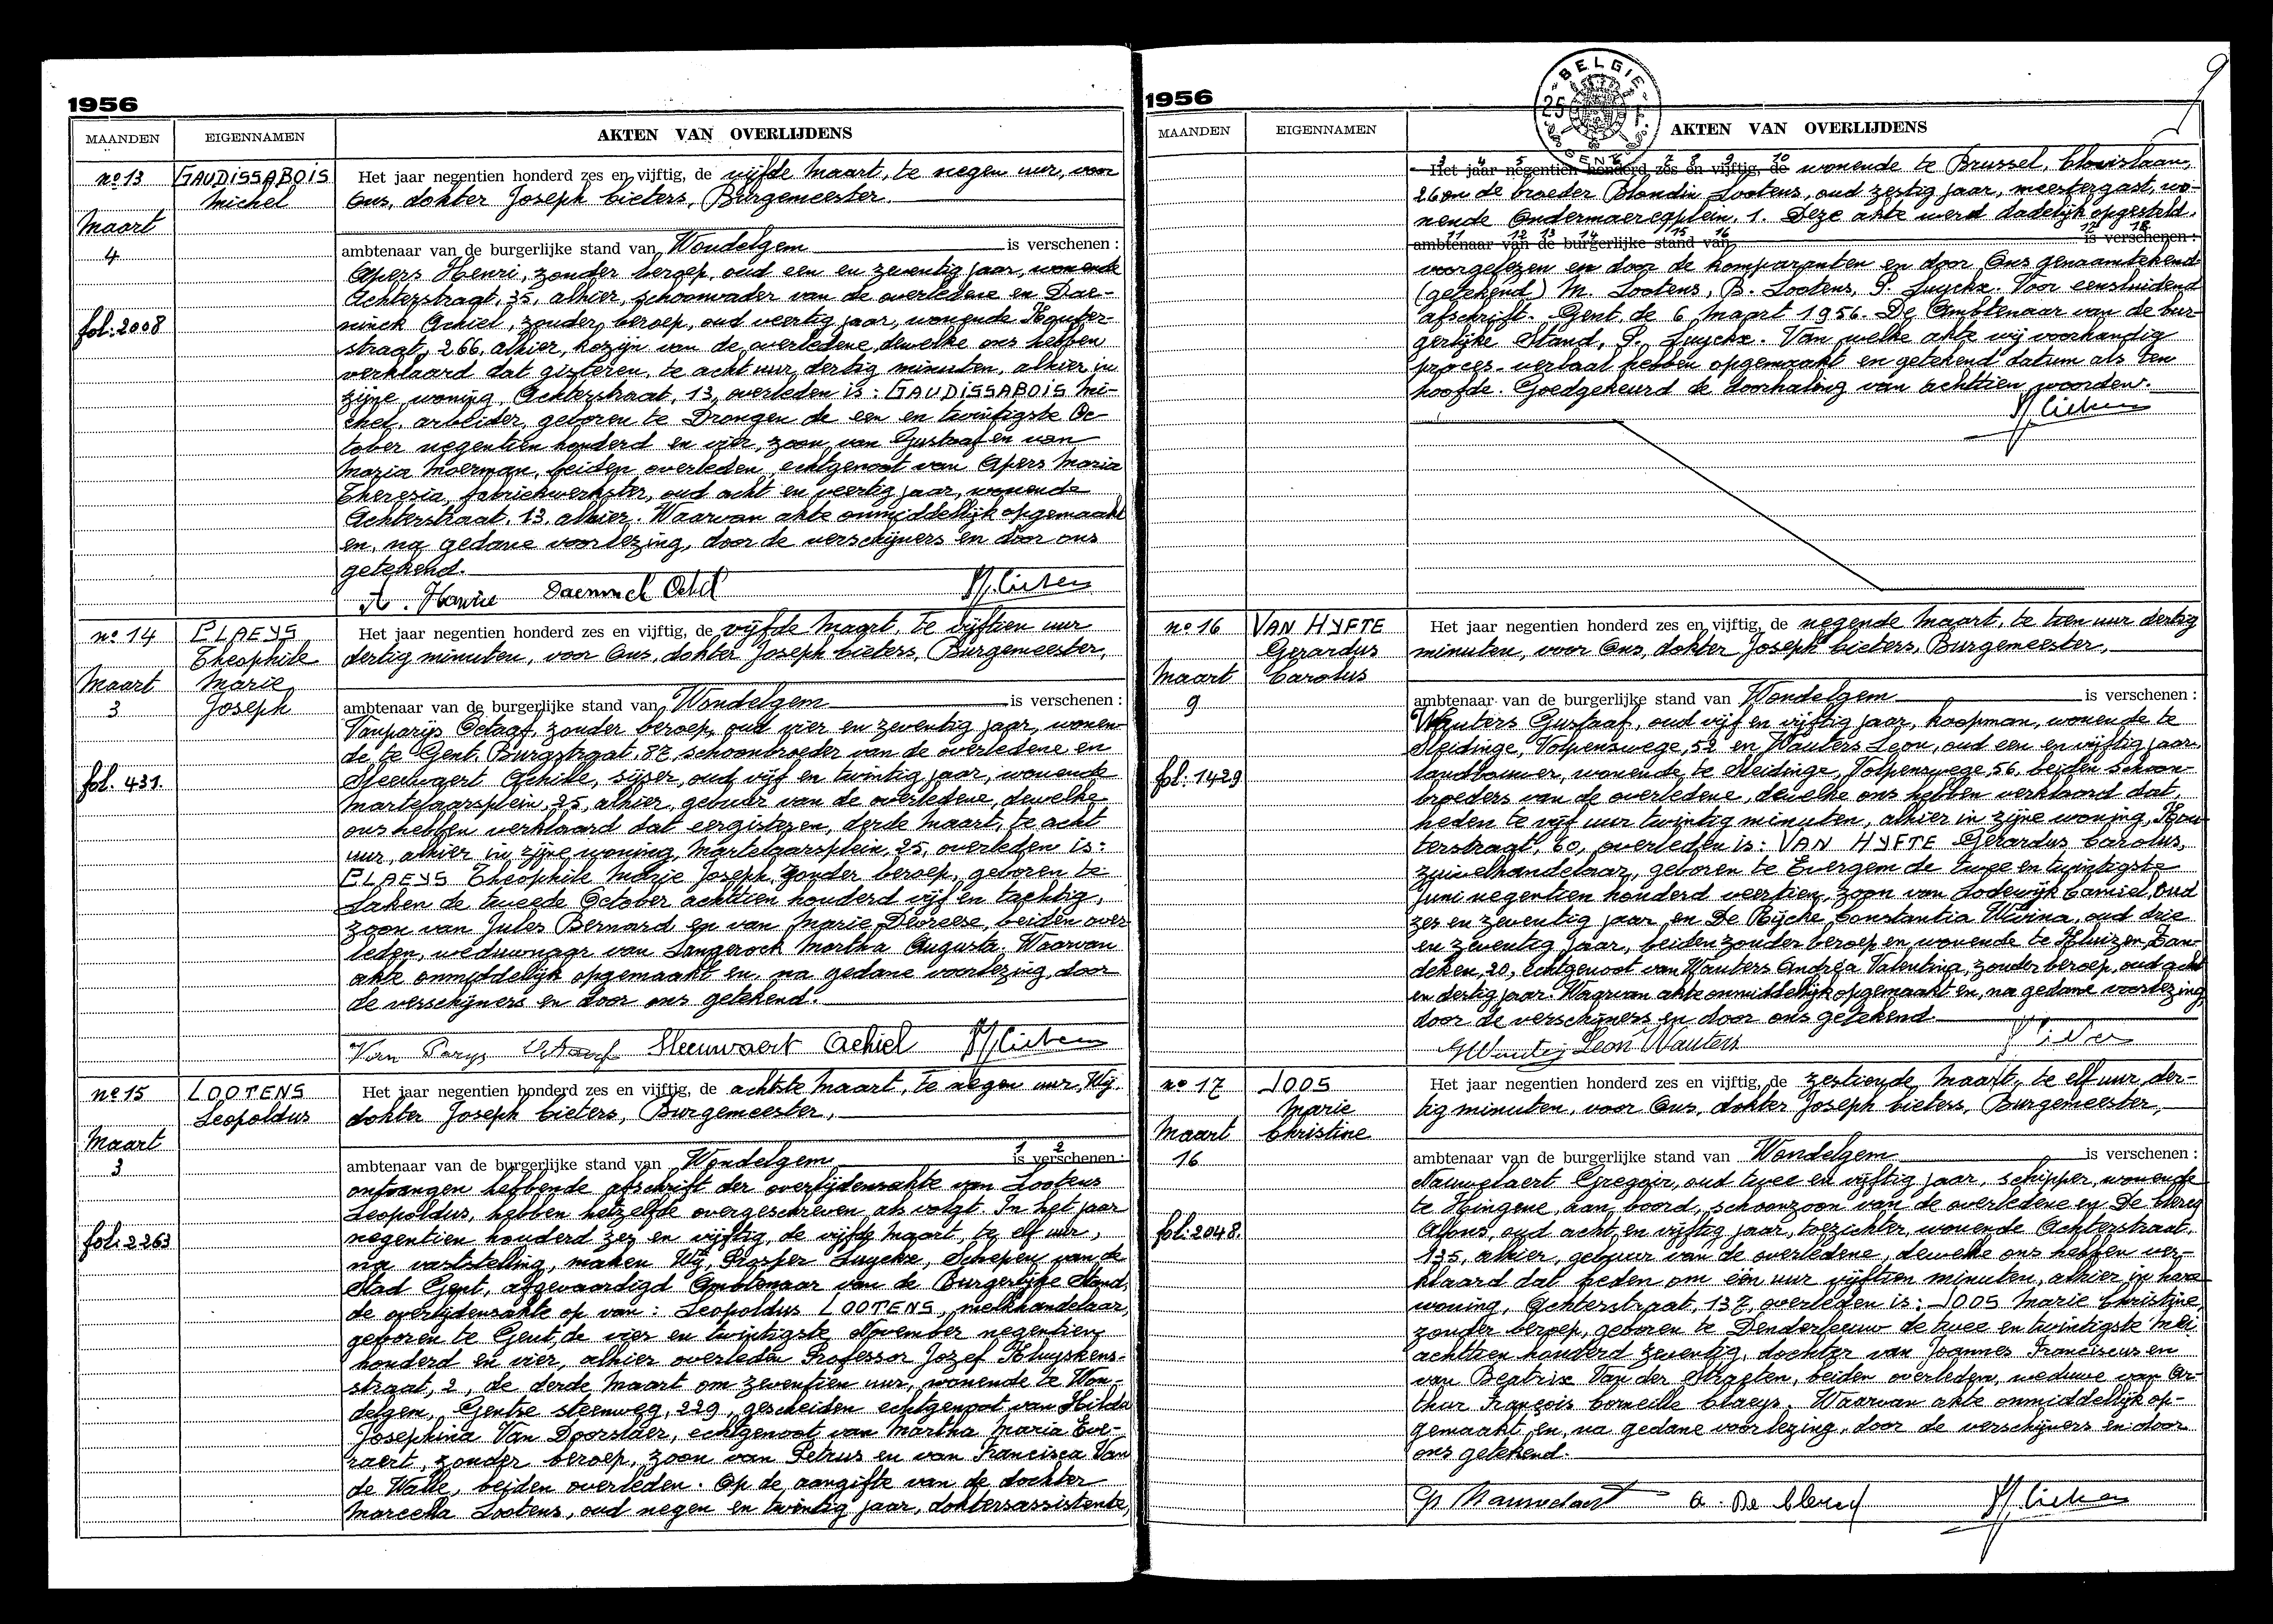 1956
MAANDEN EIGENNAMEN AKTEN VAN OVERLIJDENS
nº 13
Maart
4
fol. 2008
GAUDISSABOIS
Michel
Het jaar negentien honderd zes en vijftig, de vijfde Maart, te negen uur, voor
Ons, dokter Joseph Cieters, Burgemeester
ambtenaar van de burgerlijke stand van Wondelgem is verschenen :
Apers Henri, zonder beroep, oud een en zeventig jaar, wonende
Achterstraat, 35, alhier, schoonvader van de overledene en Dae-
ninck Achiel, zonder beroep, oud veertig jaar, wonende Houter-
straat, 266, alhier, kozijn van de overledene, dewelke ons hebben
verklaard dat gisteren, te acht uur dertig minuten, alhier in
zijne woning, Achterstraat, 13, overleden is : GAUDISSABOIS Mi-
chel, arbeider, geboren te Drongen de een en twintigste Oc-
tober negentien honderd en vier, zoon van Gustaaf en van
Maria Moerman, beiden overleden, echtgenoot van Apers Maria
Theresia, fabriekwerkster, oud acht en veertig jaar, wonende
Achterstraat, 13, alhier. Waarvan akte onmiddellijk opgemaakt
en, na gedane voorlezing, door de verschijners en door ons
getekend.
A. Henrie
nº 14
Maart
3
fol. 431.
CLAEYS
Theophile
Marie
Joseph
Het jaar negentien honderd zes en vijftig, de vijfde Maart, te vijftien uur
dertig minuten, voor Ons, dokter Joseph Cieters, Burgemeester,
ambtenaar van de burgerlijke stand van Wondelgem is verschenen :
Vanparijs Octaaf, zonder beroep, oud vier en zeventig jaar, wonen-
de te Gent, Burgstraat, 87, schoonbroeder van de overledene en
Sleeuwaert Achiel, oud vijf en twintig jaar, wonende
Martelaarsplein, 25, alhier, gebuur van de overledene, dewelke
ons hebben verklaard dat eergisteren, derde Maart, te acht
uur, alhier in zijne woning, Martelaarsplein, 25, overleden is :
CLAEYS Theophile Marie Joseph, zonder beroep, geboren te
Laken de tweede October achttien honderd vijf en tachtig,
zoon van Jules Bernard en van Marie Devreese, beiden over-
leden, weduwnaar van Langerock Martha Augusta. Waarvan
akte onmiddellijk opgemaakt en, na gedane voorlezing, door
de verschijners en door ons getekend.
Van Parys Octaaf Sleeuwaert Achiel
nº 15
Maart
3
fol. 2263
LOOTENS
Leopoldus
Het jaar negentien honderd zes en vijftig, de achtste Maart, te negen uur, Wij,
dokter Joseph Cieters, Burgemeester,
1 2
ambtenaar van de burgerlijke stand van Wondelgem is verschenen :
ontvangen hebbende afschrift der overlijdensakte van Lootens
Leopoldus, hebben hetzelfde overgeschreven als volgt. In het jaar
negentien honderd zes en vijftig, de vijfde Maart, te elf uur,
na vaststelling, maken Wij, Prosper Luyckx, Schepen van de
Stad Gent, afgevaardigd Ambtenaar van de Burgerlijke Stand,
de overlijdensakte op van : Leopoldus LOOTENS, melkhandelaar,
geboren te Gent, de vier en twintigste November negentien
honderd en vier, alhier overleden Professor Jozef Kluyskens-
straat, 2, de derde Maart om zeventien uur, wonende te Won-
delgem, Gentse steenweg, 229, gescheiden echtgenoot van Hilda
Josephina Van Doorslaer, echtgenoot van Martha Maria Eve-
raert, zonder beroep, zoon van Petrus en van Francisca Van
de Walle, beiden overleden. Op de aangifte van de dochter
Marcella Lootens, oud negen en twintig jaar, doktersassistente,
9
1956
BELGIE
25
GENT
MAANDEN EIGENNAMEN AKTEN VAN OVERLIJDENS
3 4 5 6 7 8 9 10
Het jaar negentien honderd zes en vijftig, de wonende te Brussel, Clovislaan,
26 en de broeder Blondin Lootens, oud zestig jaar, meestergast, wo-
nende Ondermaereplein, 1. Deze akte werd dadelijk opgesteld,
11 12 13 14 15 16 17 18
ambtenaar van de burgerlijke stand van is verschenen :
voorgelezen en door de komparanten en door Ons genaamtekend
(getekend) M. Lootens, B. Lootens, P. Luyckx. Voor eensluidend
afschrift. Gent, de 6 Maart 1956. De Ambtenaar van de bur-
gerlijke Stand, P. Luyckx. Van welke akte wij voorhandig
proces-verbaal hebben opgemaakt en getekend datum als ten
hoofde. Goedgekeurd de doorhaling van achttien woorden.
nº 16
Maart
9
fol. 1429
VAN HYFTE
Gerardus
Carolus
Het jaar negentien honderd zes en vijftig, de negende Maart, te tien uur dertig
minuten, voor Ons, dokter Joseph Cieters, Burgemeester,
ambtenaar van de burgerlijke stand van Wondelgem is verschenen :
Wauters Gustaaf, oud vijf en vijftig jaar, koopman, wonende te
Sleidinge, Volpenswege, 52 en Wauters Leon, oud een en vijftig jaar,
landbouwer, wonende te Sleidinge, Volpenswege, 56, beiden schoon-
broeders van de overledene, dewelke ons hebben verklaard dat
heden te vijf uur twintig minuten, alhier in zijne woning, Hou-
terstraat, 60, overleden is : VAN HYFTE Gerardus Carolus,
zuivelhandelaar, geboren te Evergem de twee en twintigste
Juni negentien honderd veertien, zoon van Lodewijk Camiel, oud
zes en zeventig jaar en De Rijcke Constantia Wivina, oud drie
en zeventig jaar, beiden zonder beroep en wonende te Kluizen, Zan-
deken, 20, echtgenoot van Wauters Andréa Valentina, zonder beroep, oud acht
en dertig jaar. Waarvan akte onmiddellijk opgemaakt en, na gedane voorlezing,
door de verschijners en door ons getekend.
G Wauters Leon Wauters
nº 17
Maart
16
fol. 2048.
JOOS
Marie
Christine
Het jaar negentien honderd zes en vijftig, de zestiende Maart, te elf uur der-
tig minuten, voor Ons, dokter Joseph Cieters, Burgemeester,
ambtenaar van de burgerlijke stand van Wondelgem is verschenen :
Nauwelaert Gregoir, oud twee en vijftig jaar, schipper, wonende
te Hingene, aan boord, schoonzoon van de overledene en De Clercq
Alfons, oud acht en vijftig jaar, toezichter, wonende Achterstraat,
135, alhier, gebuur van de overledene, dewelke ons hebben ver-
klaard dat heden om één uur vijftien minuten, alhier in hare
woning, Achterstraat, 137, overleden is : JOOS Marie Christine,
zonder beroep, geboren te Denderleeuw de twee en twintigste Mei
achttien honderd zeventig, dochter van Joannes Franciscus en
van Beatrix Van der Straeten, beiden overleden, weduwe van Ar-
thur François Corneille Claeys. Waarvan akte onmiddellijk op-
gemaakt en, na gedane voorlezing, door de verschijners en door
ons getekend.
G Nauwelaert A. De Clercq